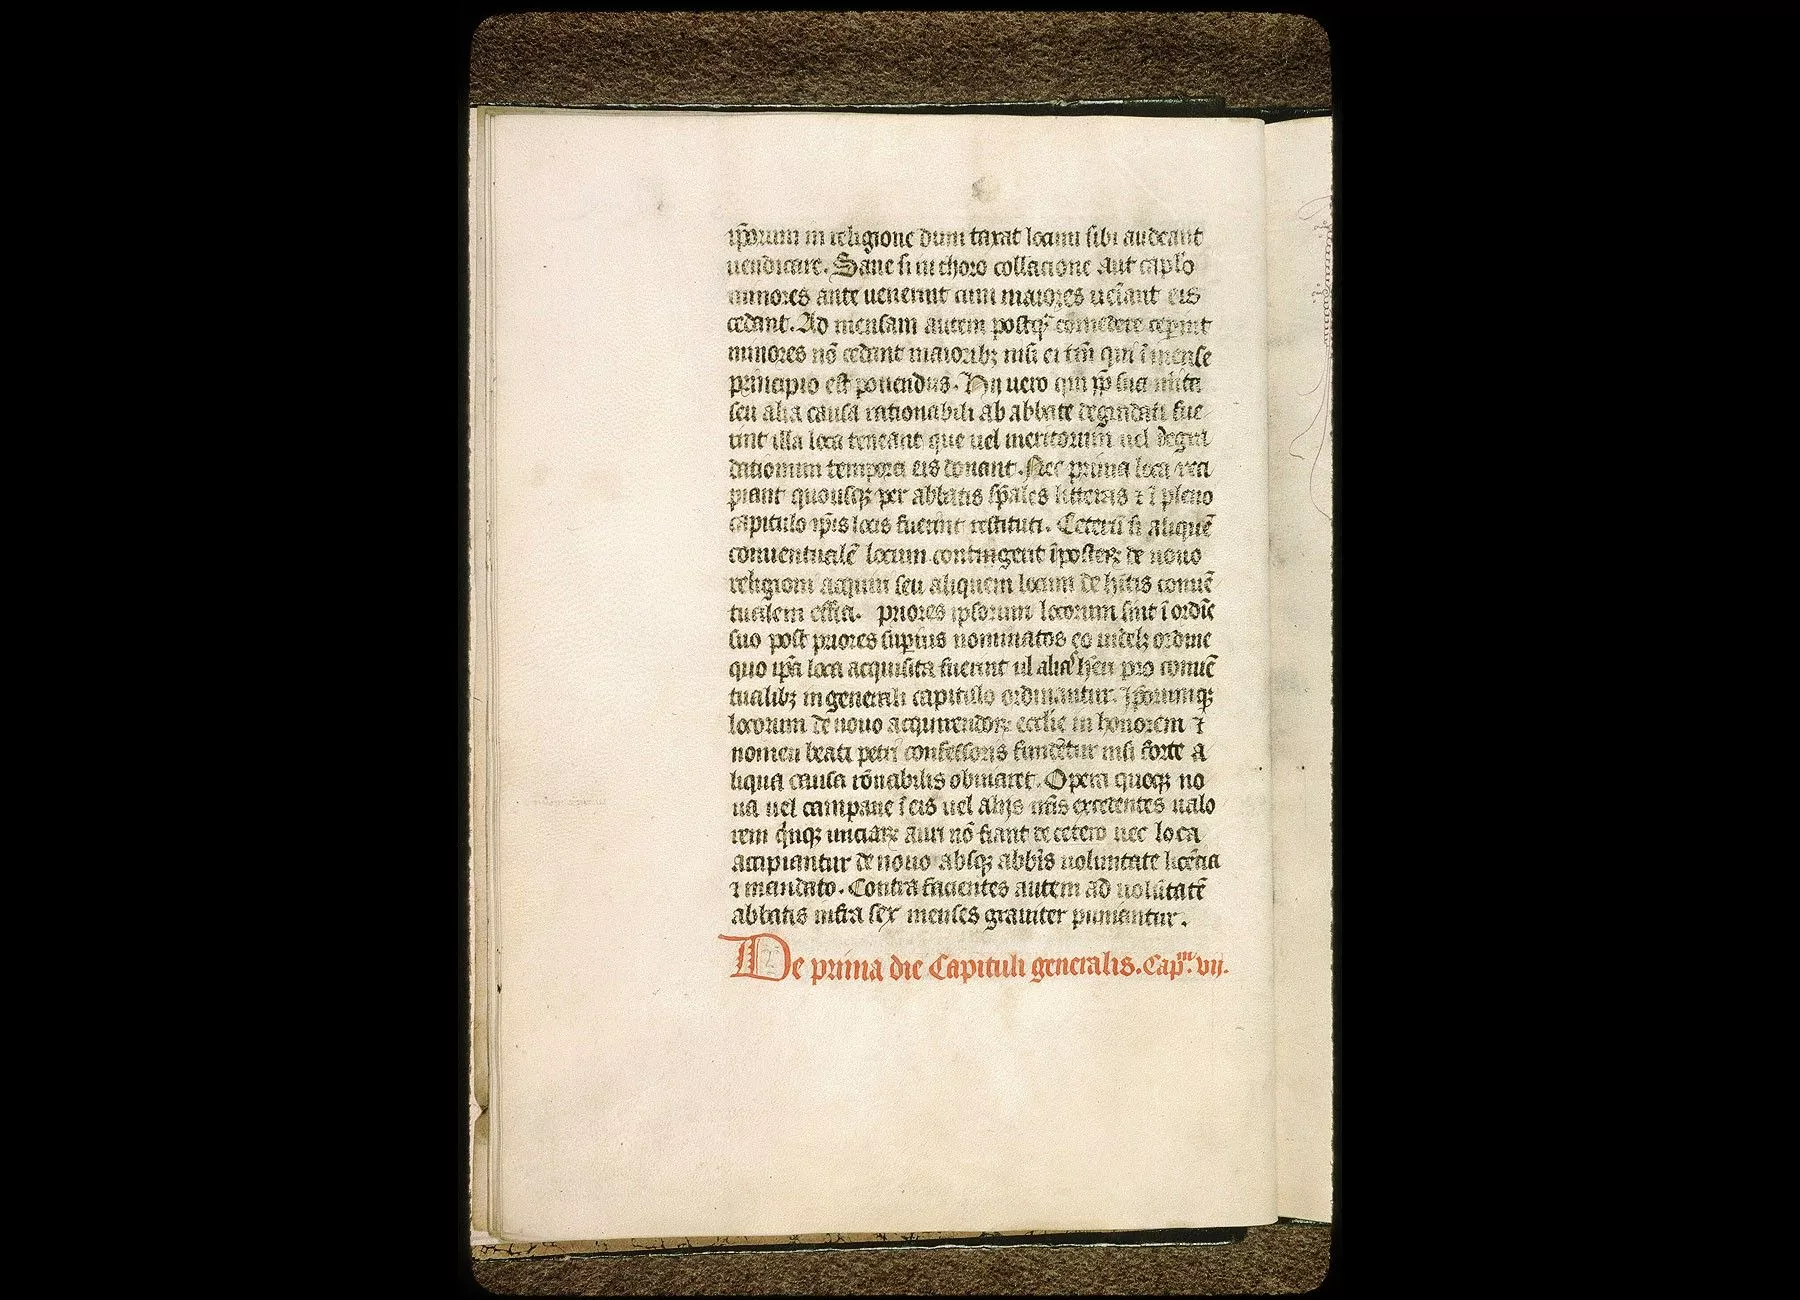 ip̄orum in religione dum taxat locum sibi audeant
uendicare. Sane si in choro collacione aut caplo
minores ante uenerint cum maiores uēiant eis
cedant. Ad mensam autem postq̄ comedere ceperint
minores nō cedant maioribꝫ nisi ei tm̄ qui ī mense
principio est ponendus. Hij uero qui pp̄ sua
seu alia causa rationabili ab abbate degradati fue
rint illa loca teneant que uel meritorum uel degra
dationum tempora eis donant. Nec prima loca reci
piant quousqꝫ per abbatis sp̄ales litteras ⁊ ī pleno
capitulo ip̄is locis fuerint restituti. Ceterū si aliquē
conuentualē locum contingerit īposteꝝ de nouo
religioni acquiri seu aliquem locum de h̄itis conuē
tualem effici. priores ipsorum locorum sint ī ordīe
suo post priores supius nominatos eo uidelꝫ ordine
quo ip̄a loca acquisita fuerint ul alias h̄ri pro conuē
tualibꝫ in generali capitulo ordinantur. Ip̄orumqꝫ
locorum de nouo acquirendoꝝ ecclie in honorem ⁊
nomen beati petri confessoris fundētur nisi forte a
liqua causa rōnabilis obuiaret. Opera quoqꝫ no
ua uel campane ī eis uel alijs nr̄is excedentes ualo
rem quīqꝫ unciaꝝ auri nō fiant de cetero nec loca
accipiantur de nouo absqꝫ abb̄is uoluntate licēcia
⁊ mandato. Contra facientes autem ad uolūtatē
abbatis infra sex menses grauiter puniantur.
De prima die Capituli generalis. Cap.ᵐ vij.